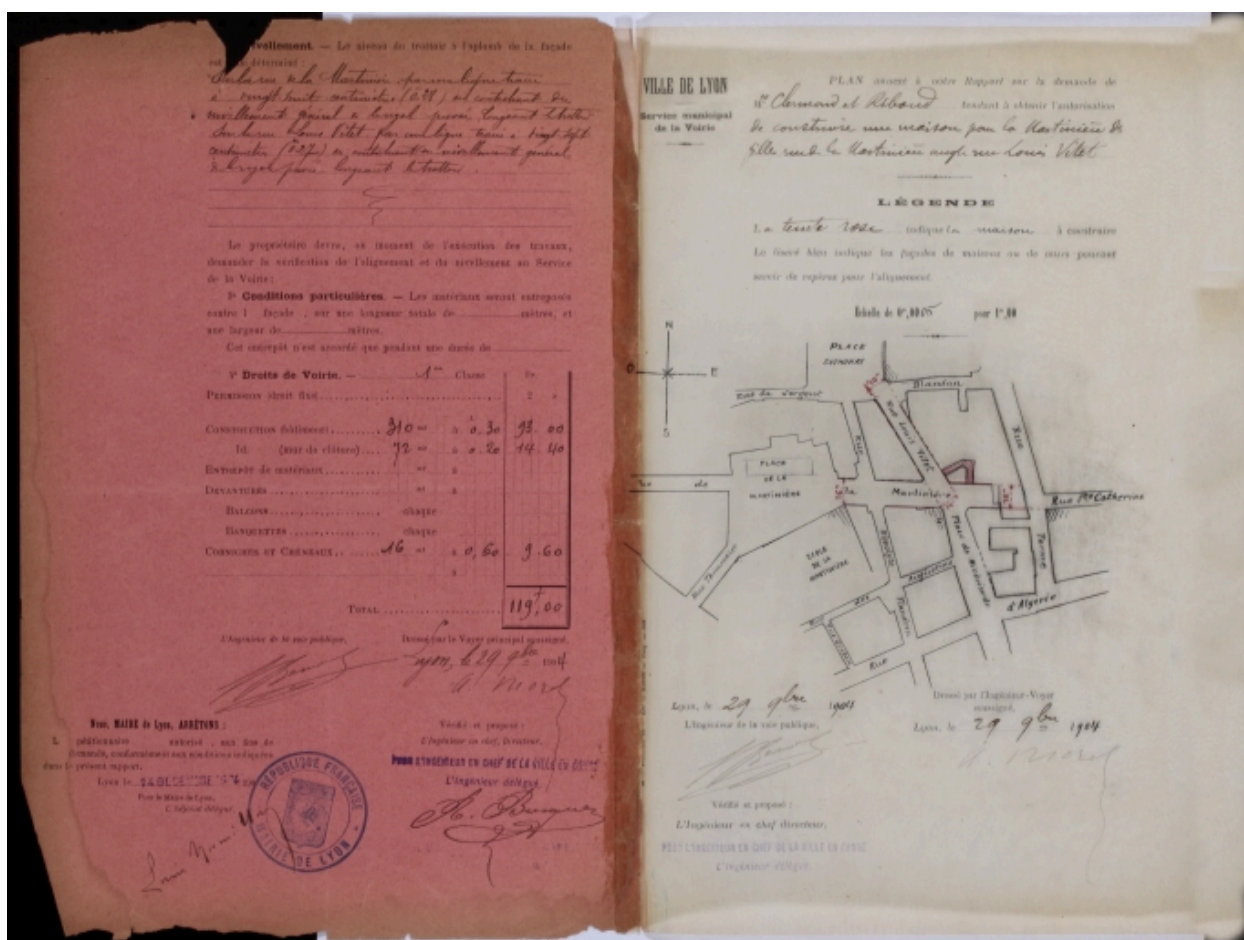 ivellement. — Le niveau du trottoir à l'aplomb de la façade
est déterminé :
rue de la Martinière par une ligne
à vingt huit centimètres (0.28) en contrehaut du
nivellement général
rue Louis Vitet par une ligne à vingt sept
centimètres (0.27) en contrehaut du nivellement général
le trottoir.
Le propriétaire devra, au moment de l'exécution des travaux,
demander la vérification de l'alignement et du nivellement au Service
de la Voirie :
3º Conditions particulières. — Les matériaux seront entreposés
contre l façade , sur une longueur totale de mètres, et
une largeur de mètres.
Cet entrepôt n'est accordé que pendant une durée de
Droits de Voirie. — 1re Classe
Permission (droit fixe)
Construction (bâtiment) 310 m à 0.30 93.00
Id. (mur de clôture) 72 m à 0.20 14.40
Entrepôt de matériaux m à
Devantures m à
Balcons chaque
Banquettes chaque
Corniches et Chéneaux 16 m à 0,60 9.60
Total 119f,00
L'Ingénieur de la voie publique,
Dressé par le Voyer principal soussigné.
Lyon, le 29 9bre 1904
A. Morel
Nous, MAIRE de Lyon, ARRÊTONS :
L pétitionnaire autorisé , aux fins de
demande, conformément aux conditions indiquées
dans le présent rapport.
Lyon le
Pour le Maire de Lyon,
L'Adjoint délégué,
RÉPUBLIQUE FRANÇAISE
MAIRIE DE LYON
Vérifié et proposé :
L'Ingénieur en chef, Directeur,
POUR L'INGÉNIEUR EN CHEF DE LA VILLE EN CONGÉ
L'Ingénieur délégué
VILLE DE LYON
Service municipal
de la Voirie
PLAN annexé à notre Rapport sur la demande de
Mrs Clermond et Riboud tendant à obtenir l'autorisation
de construire une maison pour la Martinière des
filles rue de la Martinière angle rue Louis Vitet
LÉGENDE
La teinte rose indique la maison à construire
Le liseré bleu indique les façades de maisons ou de murs pouvant
servir de repères pour l'alignement.
Échelle de 0m,0005 pour 1m,00
N
O
E
S
PLACE
SATHONAY
Blandan
Rue
Rue Louis Vitet
Rue
PLACE
DE LA
MARTINIÈRE
de
la
Martinière
Rue Ste Catherine
ECOLE
DE LA
MARTINIÈRE
Place de Miséricorde
Terme
Rue
des
Augustins
d'Algérie
Rue
Lyon, le 29 9bre 1904
L'Ingénieur de la voie publique,
Dressé par l'Ingénieur-Voyer
soussigné,
Lyon, le 29 9bre 1904
A. Morel
Vérifié et proposé :
L'Ingénieur en chef directeur,
POUR L'INGÉNIEUR EN CHEF DE LA VILLE EN CONGÉ
L'Ingénieur délégué